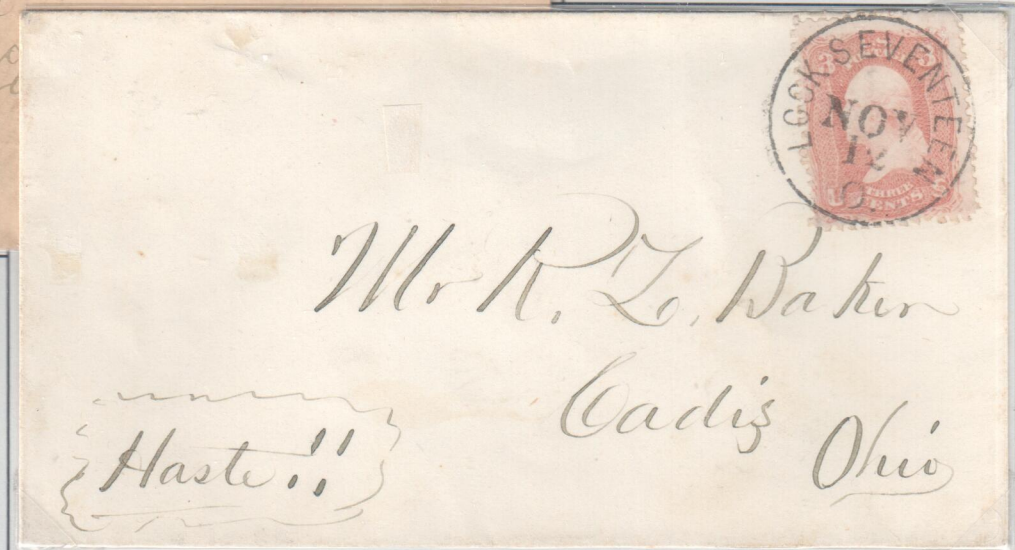 LOCK SEVENTEEN
NOV
12
O.
THREE
CENTS
Mr R. Z. Baker
Cadiz
Ohio
Haste!!